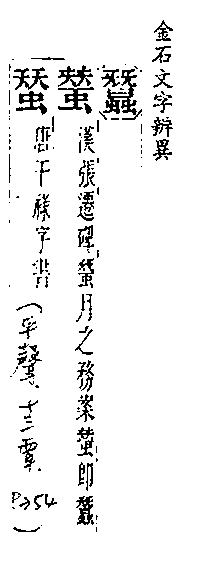 金石文字辨異
蠶
蝅漢張遷碑蝅月之務案蝅即蠶
蝅唐干祿字書(平聲十三覃P.254)